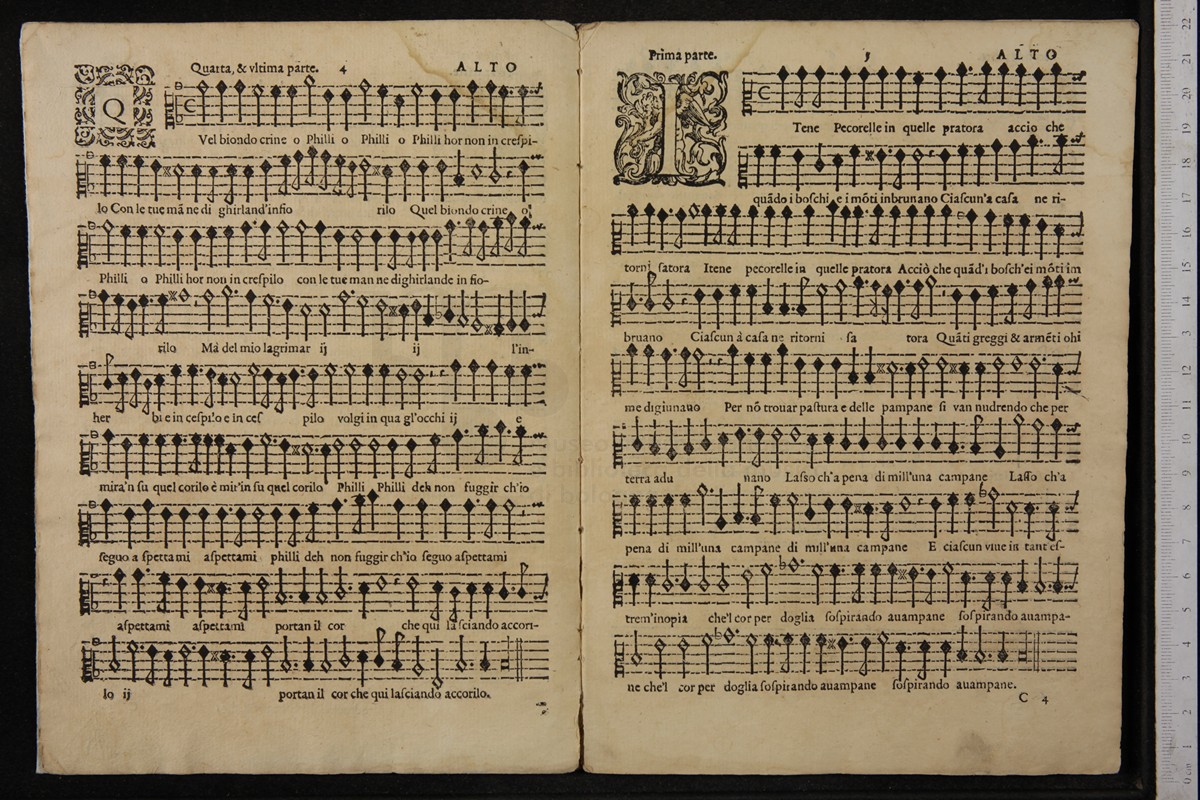 Quarta, & vltima parte. 4 ALTO
Q
Vel biondo crine o Philli o Philli o Philli hor non in crespi-
lo Con le tue mā ne di ghirland'infio rilo Quel biondo crine o
Philli o Philli hor non in crespilo con le tue man ne dighirlande in fio-
rilo Ma del mio lagrimar ij ij l'in-
her bi e in cespilo e in ces pilo volgi in qua gl'occhi ij e
mira'n su quel corilo è mir'in su quel corilo Philli Philli deh non fuggir ch'io
seguo a spetta mi aspettami philli deh non fuggir ch'io seguo aspettami
aspettami aspettami portan il cor che qui lasciando accori-
lo ij portan il cor che qui lasciando accorilo.
Prima parte. 5 ALTO
I
Tene Pecorelle in quelle pratora accio che
quādo i boschi e i mōti inbrunano Ciascun'a casa ne ri-
torni satora Itene pecorelle in quelle pratora Acciò che quād'i bosch'ei mōti im
bruano Ciascun à casa ne ritorni sa tora Quāti greggi & armēti ohi
me digiunauo Per nō trouar pastura e delle pampane si van nudrendo che per
terra adu nano Lasso ch'a pena di mill'una campane Lasso ch'a
pena di mill'una campane di mill'una campane E ciascun viue in tant'es-
trem'inopia che'l cor per doglia sospirando auampane sospirando auampa-
ne che'l cor per doglia sospirando auampane sospirando auampane.
C 4